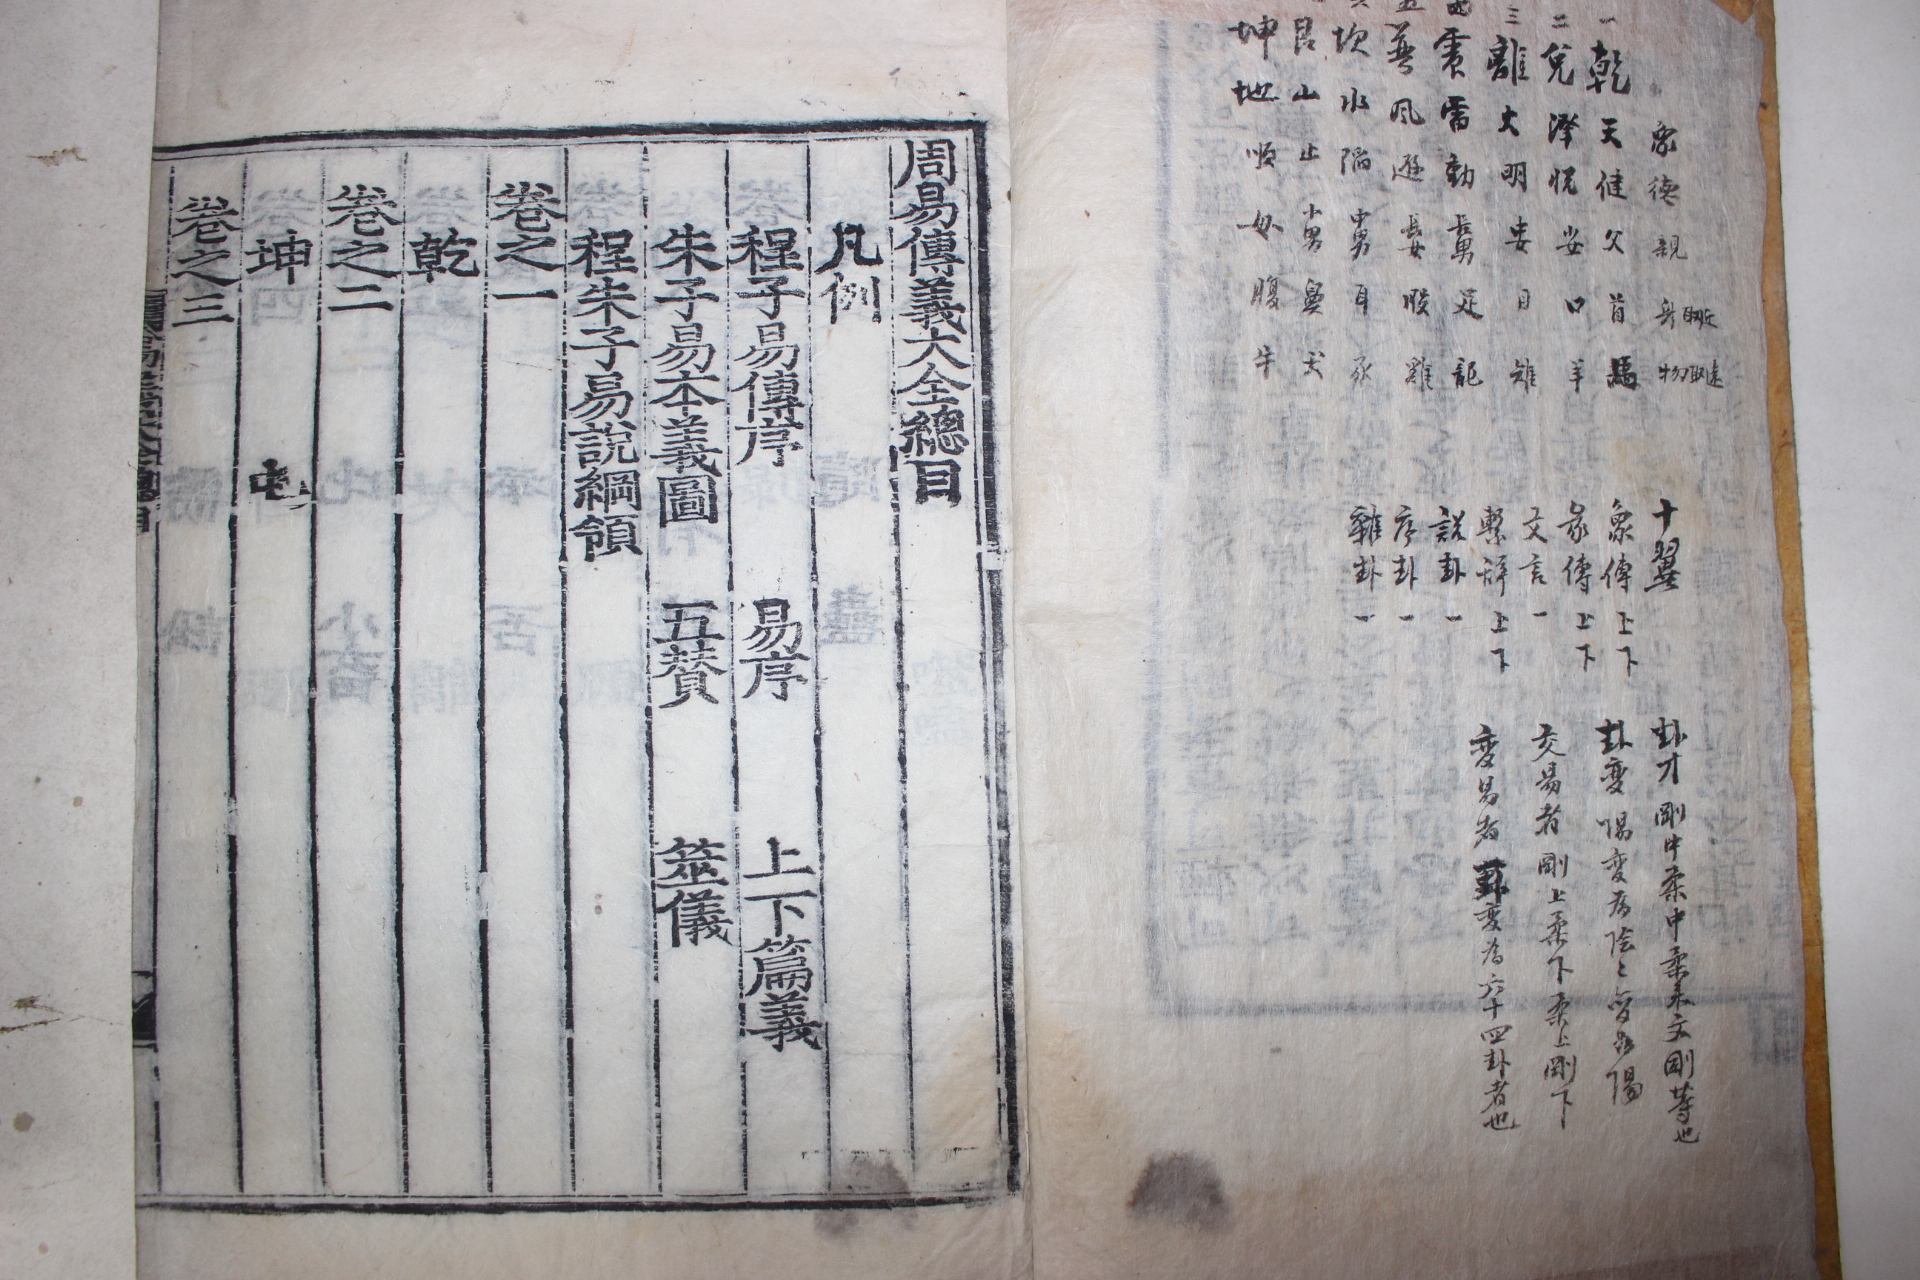 象德親身物
近取
遠取
一乾天健父首馬
二兌澤悅少女口羊
三離火明中女目雉
四震雷動長男足龍
五巽風遜長女股雞
坎水陷中男耳豕
艮山止少男鼻犬
坤地順母腹牛
十翼
彖傳上下
象傳上下
文言一
繫辭上下
說卦一
序卦一
雜卦一
卦才剛中柔中柔來文剛等也
卦變陽變爲陰〻變爲陽
交易者剛上柔下柔上剛下
變易者卦變為六十四卦者也
周易傳義大全總目
凡例
程子易傳序 易序 上下篇義
朱子易本義圖 五贊 筮儀
程朱子易說綱領
卷之一
乾
卷之二
坤 屯
卷之三